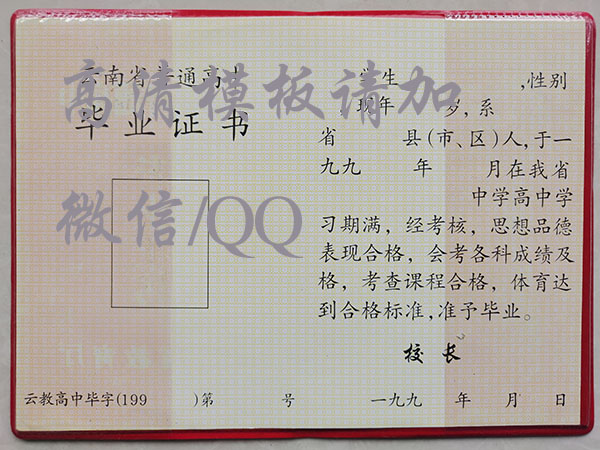 云南省普通高中
毕业证书
高清模板请加
微信/QQ
学生 ,性别
现年 岁,系
省 县(市、区)人,于一
九九 年 月在我省
中学高中学
习期满,经考核,思想品德
表现合格,会考各科成绩及
格,考查课程合格,体育达
到合格标准,准予毕业。
校长
云教高中毕字(199 )第 号
一九九 年 月 日